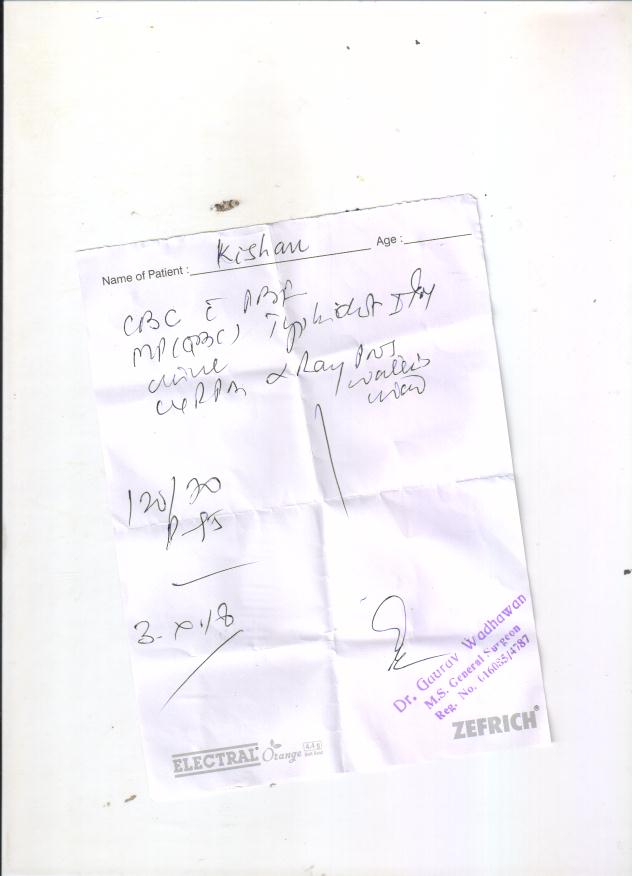 Name of Patient : Kishan Age :
CBC
MP(QBC) Typhidot IgM
Urine
X Ray PNS
waters
view
120/70
P-85
3.X.18
Dr. Gaurav Wadhawan
M.S. General Surgeon
Reg. No.
ZEFRICH
ELECTRAL Orange